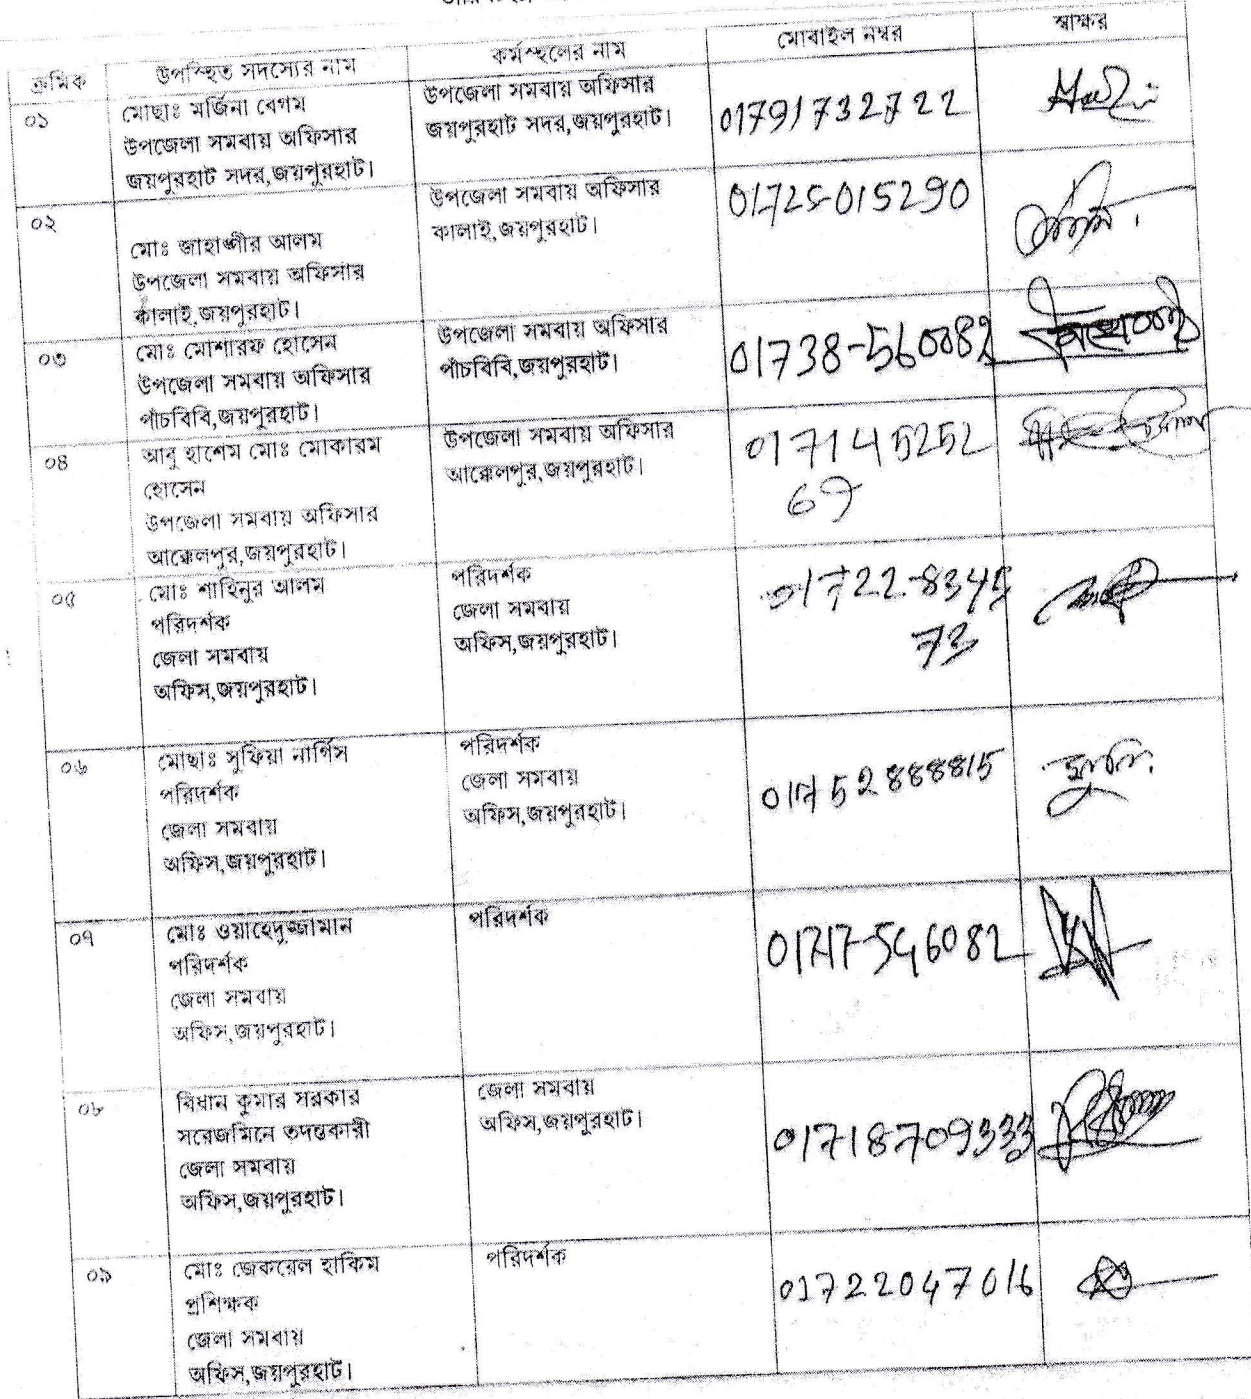 ক্রমিক উপস্থিত সদস্যের নাম কর্মস্থলের নাম মোবাইল নম্বর স্বাক্ষর
০১ মোছাঃ মর্জিনা বেগম
উপজেলা সমবায় অফিসার
জয়পুরহাট সদর,জয়পুরহাট।
উপজেলা সমবায় অফিসার
জয়পুরহাট সদর,জয়পুরহাট।
01791732722
০২
মোঃ জাহাঙ্গীর আলম
উপজেলা সমবায় অফিসার
কালাই,জয়পুরহাট।
উপজেলা সমবায় অফিসার
কালাই,জয়পুরহাট।
01725-015290
০৩ মোঃ মোশারফ হোসেন
উপজেলা সমবায় অফিসার
পাঁচবিবি,জয়পুরহাট।
উপজেলা সমবায় অফিসার
পাঁচবিবি,জয়পুরহাট।
01738-560082
০৪ আবু হাশেম মোঃ মোকারম
হোসেন
উপজেলা সমবায় অফিসার
আক্কেলপুর,জয়পুরহাট।
উপজেলা সমবায় অফিসার
আক্কেলপুর,জয়পুরহাট।
017145252
69
০৫ মোঃ শাহিনুর আলম
পরিদর্শক
জেলা সমবায়
অফিস,জয়পুরহাট।
পরিদর্শক
জেলা সমবায়
অফিস,জয়পুরহাট।
01722-8345
73
০৬ মোছাঃ সুফিয়া নার্গিস
পরিদর্শক
জেলা সমবায়
অফিস,জয়পুরহাট।
পরিদর্শক
জেলা সমবায়
অফিস,জয়পুরহাট।
01752888815
০৭ মোঃ ওয়াহেদুজ্জামান
পরিদর্শক
জেলা সমবায়
অফিস,জয়পুরহাট।
পরিদর্শক
01717-546082
০৮ বিধান কুমার সরকার
সরেজমিনে তদন্তকারী
জেলা সমবায়
অফিস,জয়পুরহাট।
জেলা সমবায়
অফিস,জয়পুরহাট।
01718709333
০৯ মোঃ জেকরেল হাকিম
প্রশিক্ষক
জেলা সমবায়
অফিস,জয়পুরহাট।
পরিদর্শক
01722047016